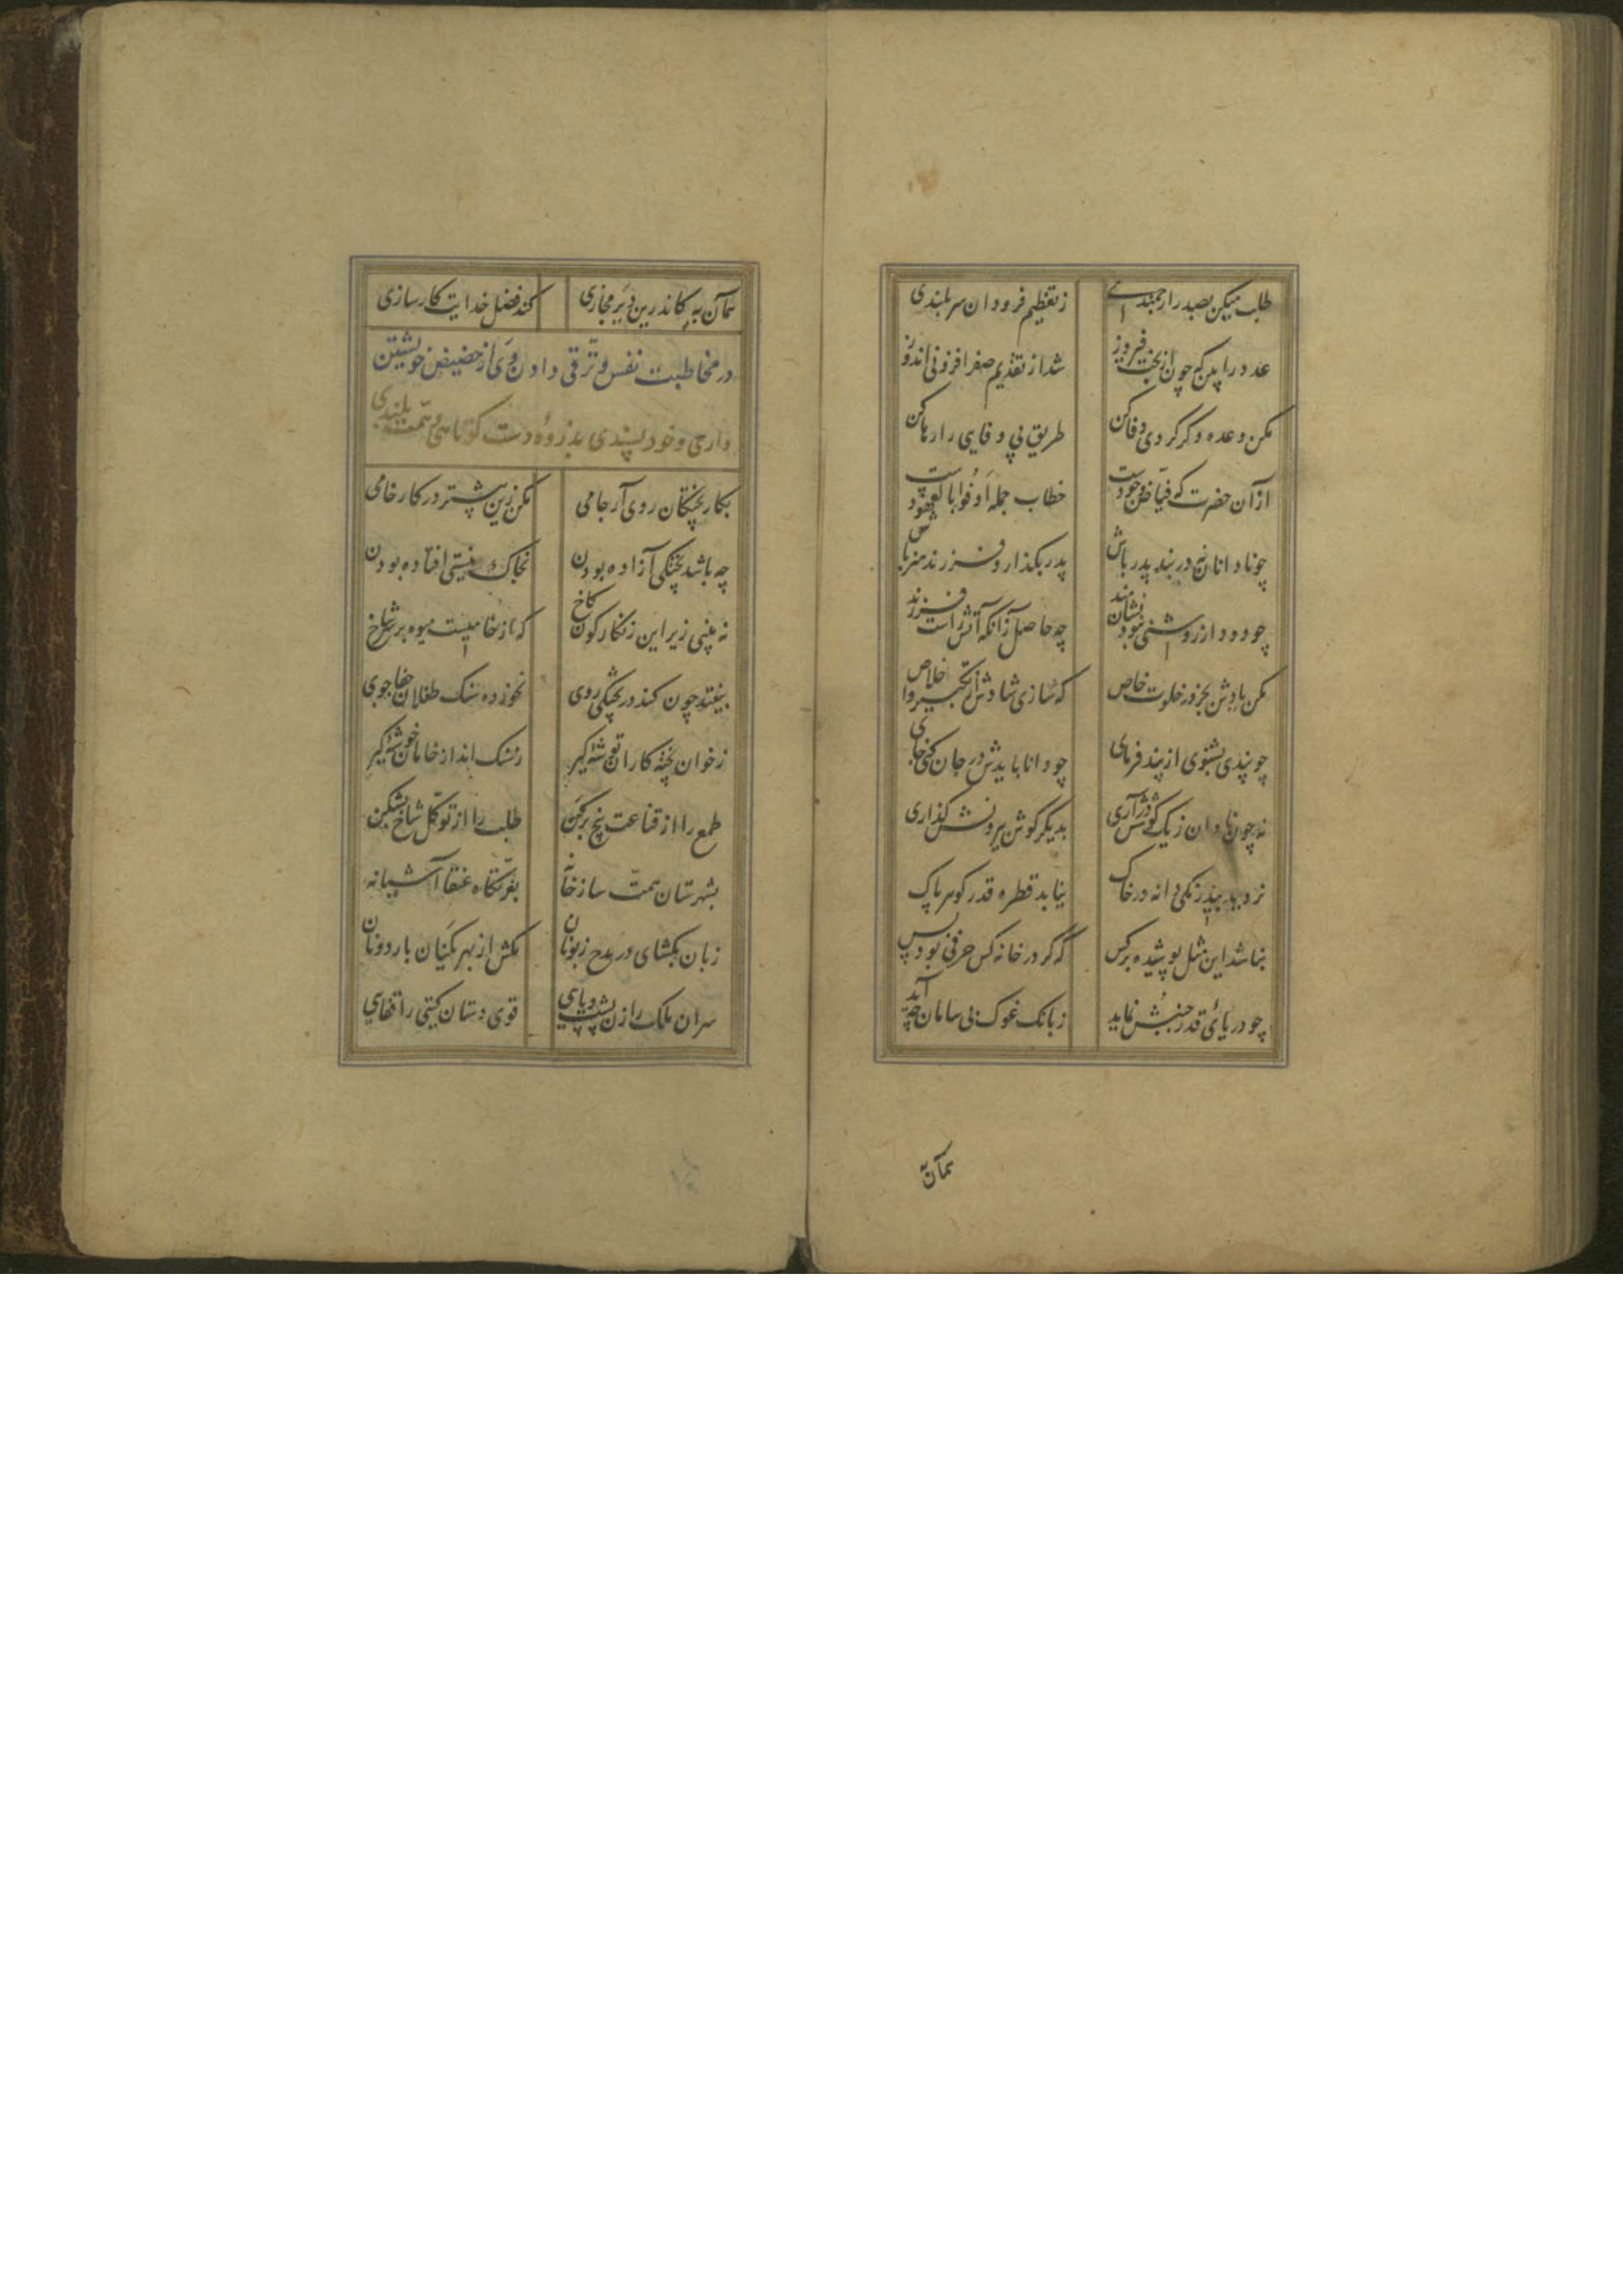 طلب میکن بصدر ارجمندی
ز تعظیم فرودان سربلندی
عدد را بین که چون از بخت فیروز
شد از تقدیم صفر افزونی اندوز
مکن وعده وگر کردی وفا کن
طریق بی وفایی را رها کن
از آن حضرت که فیاض وجودست
خطاب جمله اوفوا بالعهودست
چو نادانان نه در بند پدر باش
پدر بگذار و فرزند هنر باش
چو دود از روشنی نبود نشانمند
چه حاصل زانکه آتش راست فرزند
مکن یادش بجز در خلوت خاص
که سازی شادش از تکبیر و اخلاص
چو پندی بشنوی از پند فرمای
چو دانا بایدش در جان کنی جای
نه چون نادان ز یک گوشش درآری
بدیگر گوش بیرونش گذاری
نروید بیدرنگی دانه در خاک
نیابد قطره قدر گوهر پاک
نباشد این مثل پوشیده بر کس
که گر در خانه کس حرفی بود بس
چو دریائی قدر جنبش نماید
ز بانگ غوک بی سامان چه آید
همان به
همان به کاندرین دیر مجازی
کند فضل خدایت کارسازی
در مخاطبت نفس و ترقی دادن وی از حضیض خویشتن
داری و خودپسندی بذروه دست کوتاهی و همت بلندی
بکار پختگان روی آر جامی
مکن زین بیشتر در کار خامی
چه باشد پختگی آزاده بودن
بخاک نیستی افتاده بودن
نه بینی زیر این زنگارگون کاخ
که از خامیست میوه بر سر شاخ
بیفتد چون کند در پختگی روی
نخورده سنگ طفلان جفاجوی
ز خوان پخته کاران توشه گیر
ز سنگ انداز خامان گوشه گیر
طمع را از قناعت بیخ برکن
طلب را از توکل شاخ بشکن
بشهرستان همت ساز خانه
بغربتگاه عنقا آشیانه
زبان مگشای در مدح زبونان
مکش از بهر یک نان بار دونان
سران ملک را زن پشت پایی
قوی دستان گیتی را قفایی